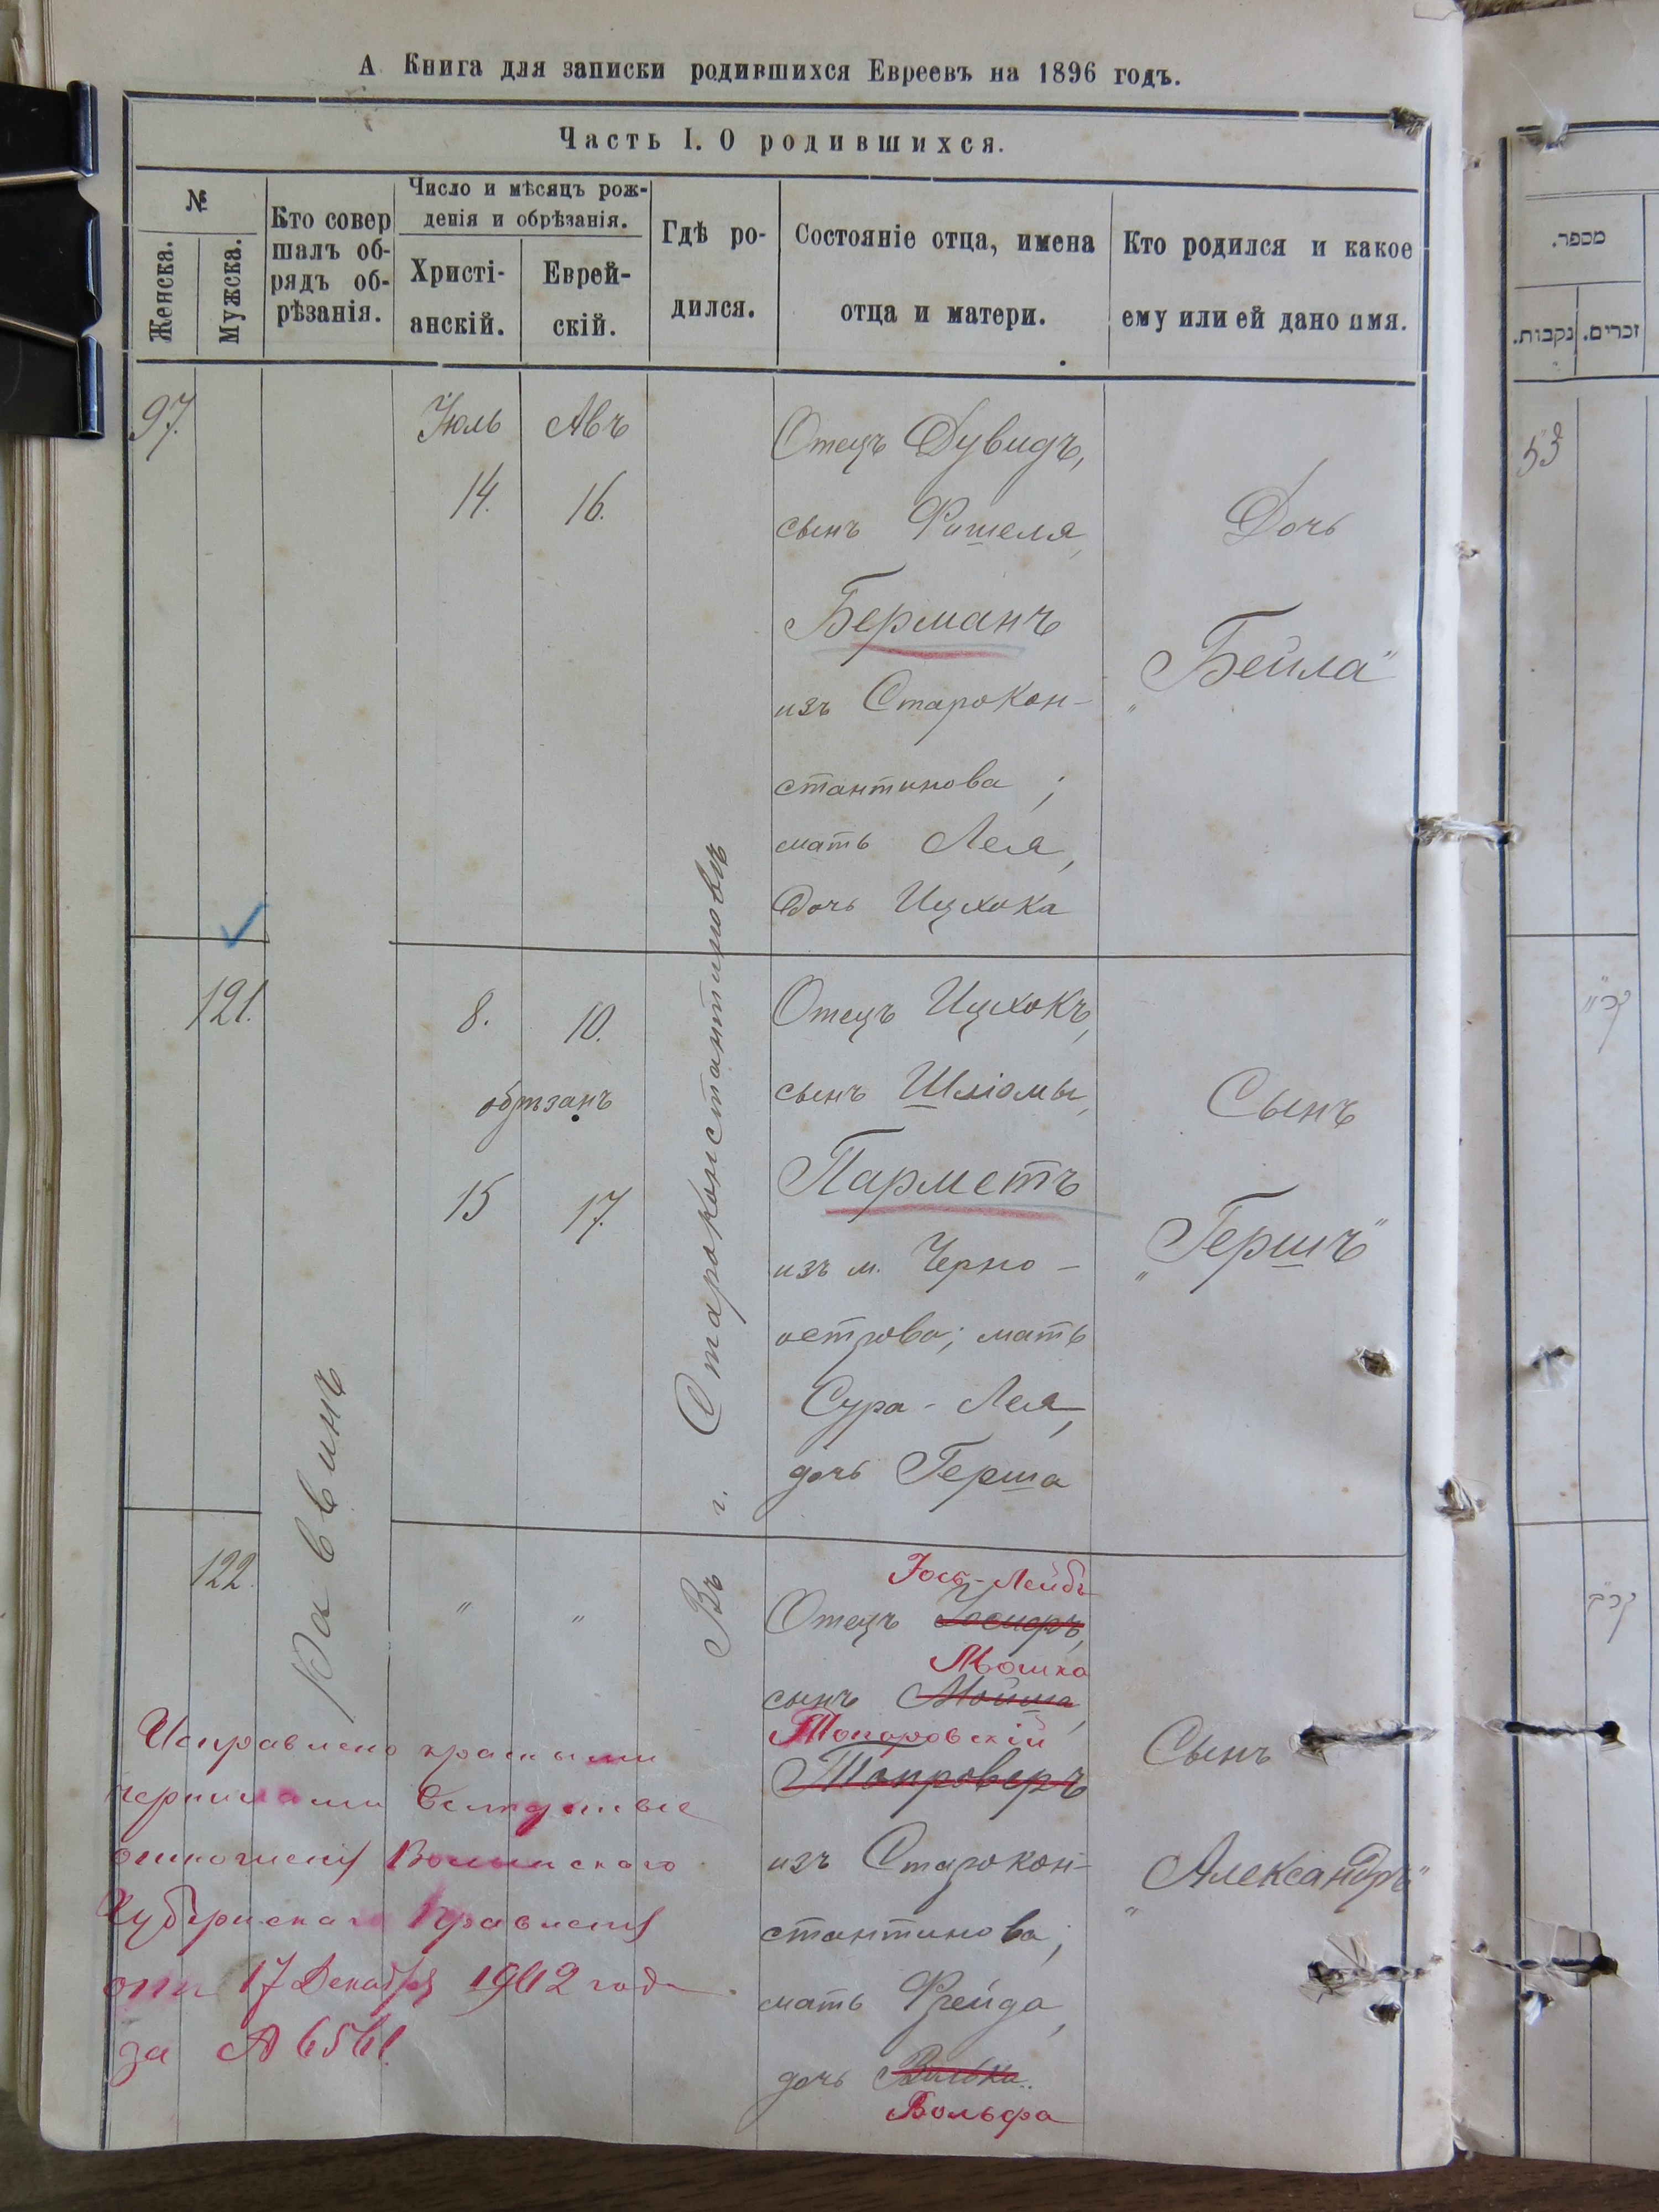 А Книга для записки родившихся Евреевъ на 1896 годъ.
Часть I. О родившихся.
№
Женска.
Мужска.
Кто совер
шалъ об-
рядъ об-
рѣзанія.
Число и мѣсяцъ рож-
денія и обрѣзанія.
Христі-
анскій.
Еврей-
скій.
Гдѣ ро-
дился.
Состояніе отца, имена
отца и матери.
Кто родился и какое
ему или ей дано имя.
97.
Іюль
14.
Авъ
16.
Отецъ Дувидъ,
сынъ Фишеля,
Берманъ
изъ Старокон-
стантинова;
мать Лея,
дочь Ицхока
Дочь
„Бейла"
121.
8.
10.
обрѣзанъ
15
17.
Отецъ Ицхокъ,
сынъ Шліомы,
Парметъ
изъ м. Черно-
острова; мать
Сура-Лея,
дочь Герша
Сынъ
„Гершъ"
Раввинъ
Въ г. Староконстантиновъ
122.
"
"
Іось-Лейбъ
Отецъ Іосифъ,
Мошка
сынъ Мойша,
Топоровскій
Топроверъ
изъ Старокон-
стантинова;
мать Фрейда,
дочь Волька.
Вольфа
Сынъ
„Александръ"
Исправлено красными
чернилами вслѣдствіе
отношенія Волынскаго
Губернскаго Правленія
отъ 17 Декабря 1912 года
за №
מספר.
נקבות.
זכרים.
קכ"א
קכ"ב